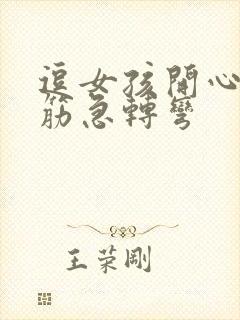 逗女孩開心
筋急轉彎
王荣剛